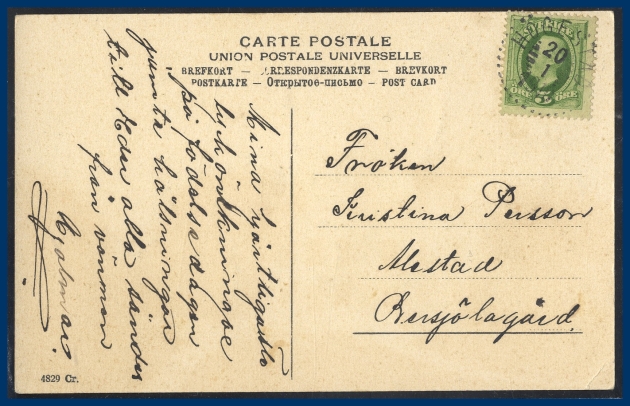 CARTE POSTALE
UNION POSTALE UNIVERSELLE
BREFKORT — CORRESPONDENZKARTE — BREVKORT
POSTKARTE — Открытое-письмо — POST CARD
Mina hjärtligaste
lyckönskningar
på födelsedagen
jämte hälsningar
till Eder alla sändes
från vännen
Hjalmar.
Fröken
Kristina Persson
Alestad
Bersjölagård.
20
1
5 ÖRE
4829 Cr.